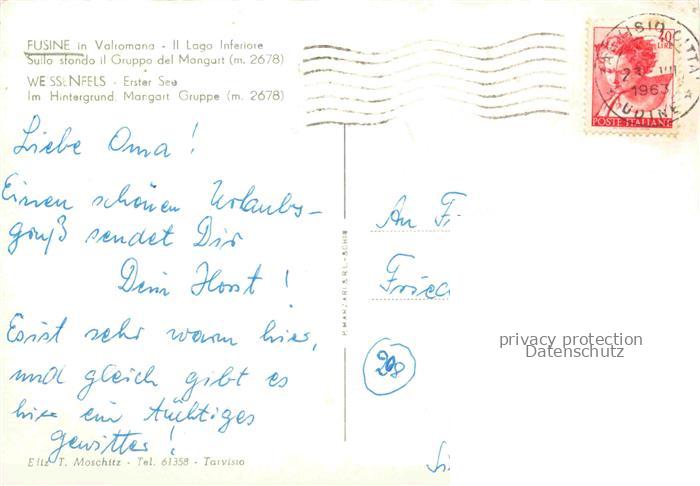 FUSINE in Valromana - Il Lago Inferiore
Sullo sfondo il Gruppo del Mangart (m. 2678)
WEISSENFELS - Erster See
Im Hintergrund, Mangart Gruppe (m. 2678)
Liebe Oma!
Einen schönen Urlaubs-
gruß sendet Dir
Dein Horst!
Es ist sehr warm hier,
und gleich gibt es
hier ein tüchtiges
Gewitter!
Ediz T. Moschitz - Tel. 61358 - Tarvisio
P. MARZARI S.R.L. - SCHIO
40
LIRE
POSTE ITALIANE
TARVISIO CITTA'
1963
UDINE
An Fr
Fried
208
privacy protection
Datenschutz